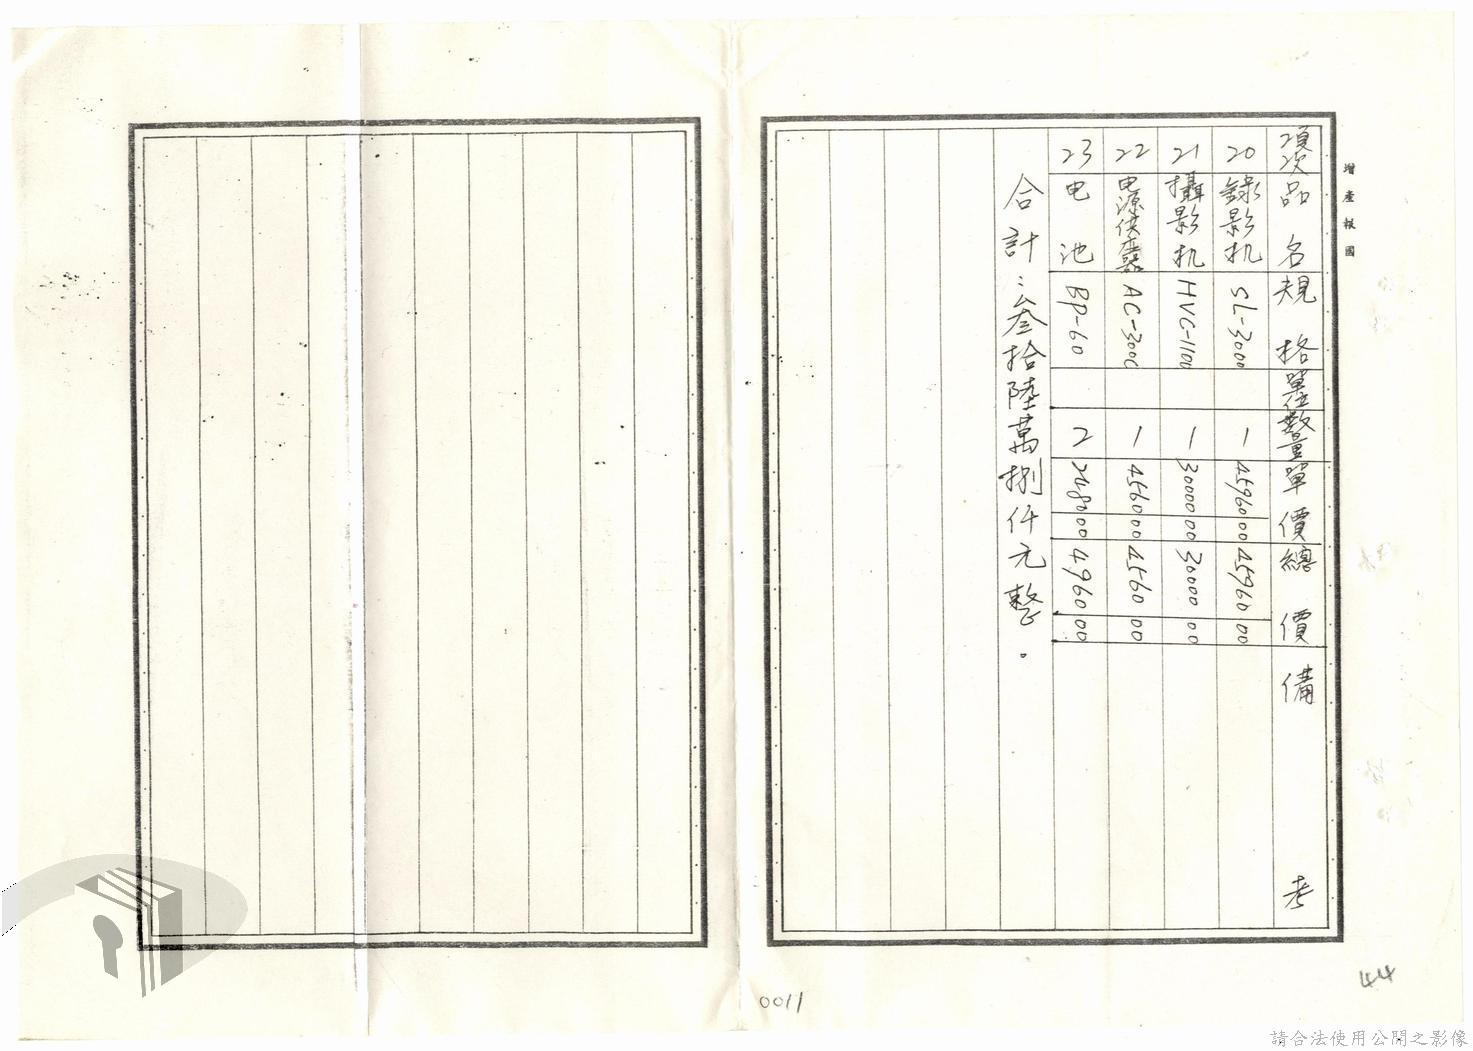 增產報國
項次 品名 規格 單位 數量 單價 總價 備考
20 錄影机 SL-3000 1 45960 00 45960 00
21 攝影机 HVC-1100 1 30000 00 30000 00
22 电源供应器 AC-300C 1 4560 00 4560 00
23 电池 BP-60 2 2480 00 4960 00
合計:叁拾陸萬捌仟元整。
0011
44
請合法使用公開之影像